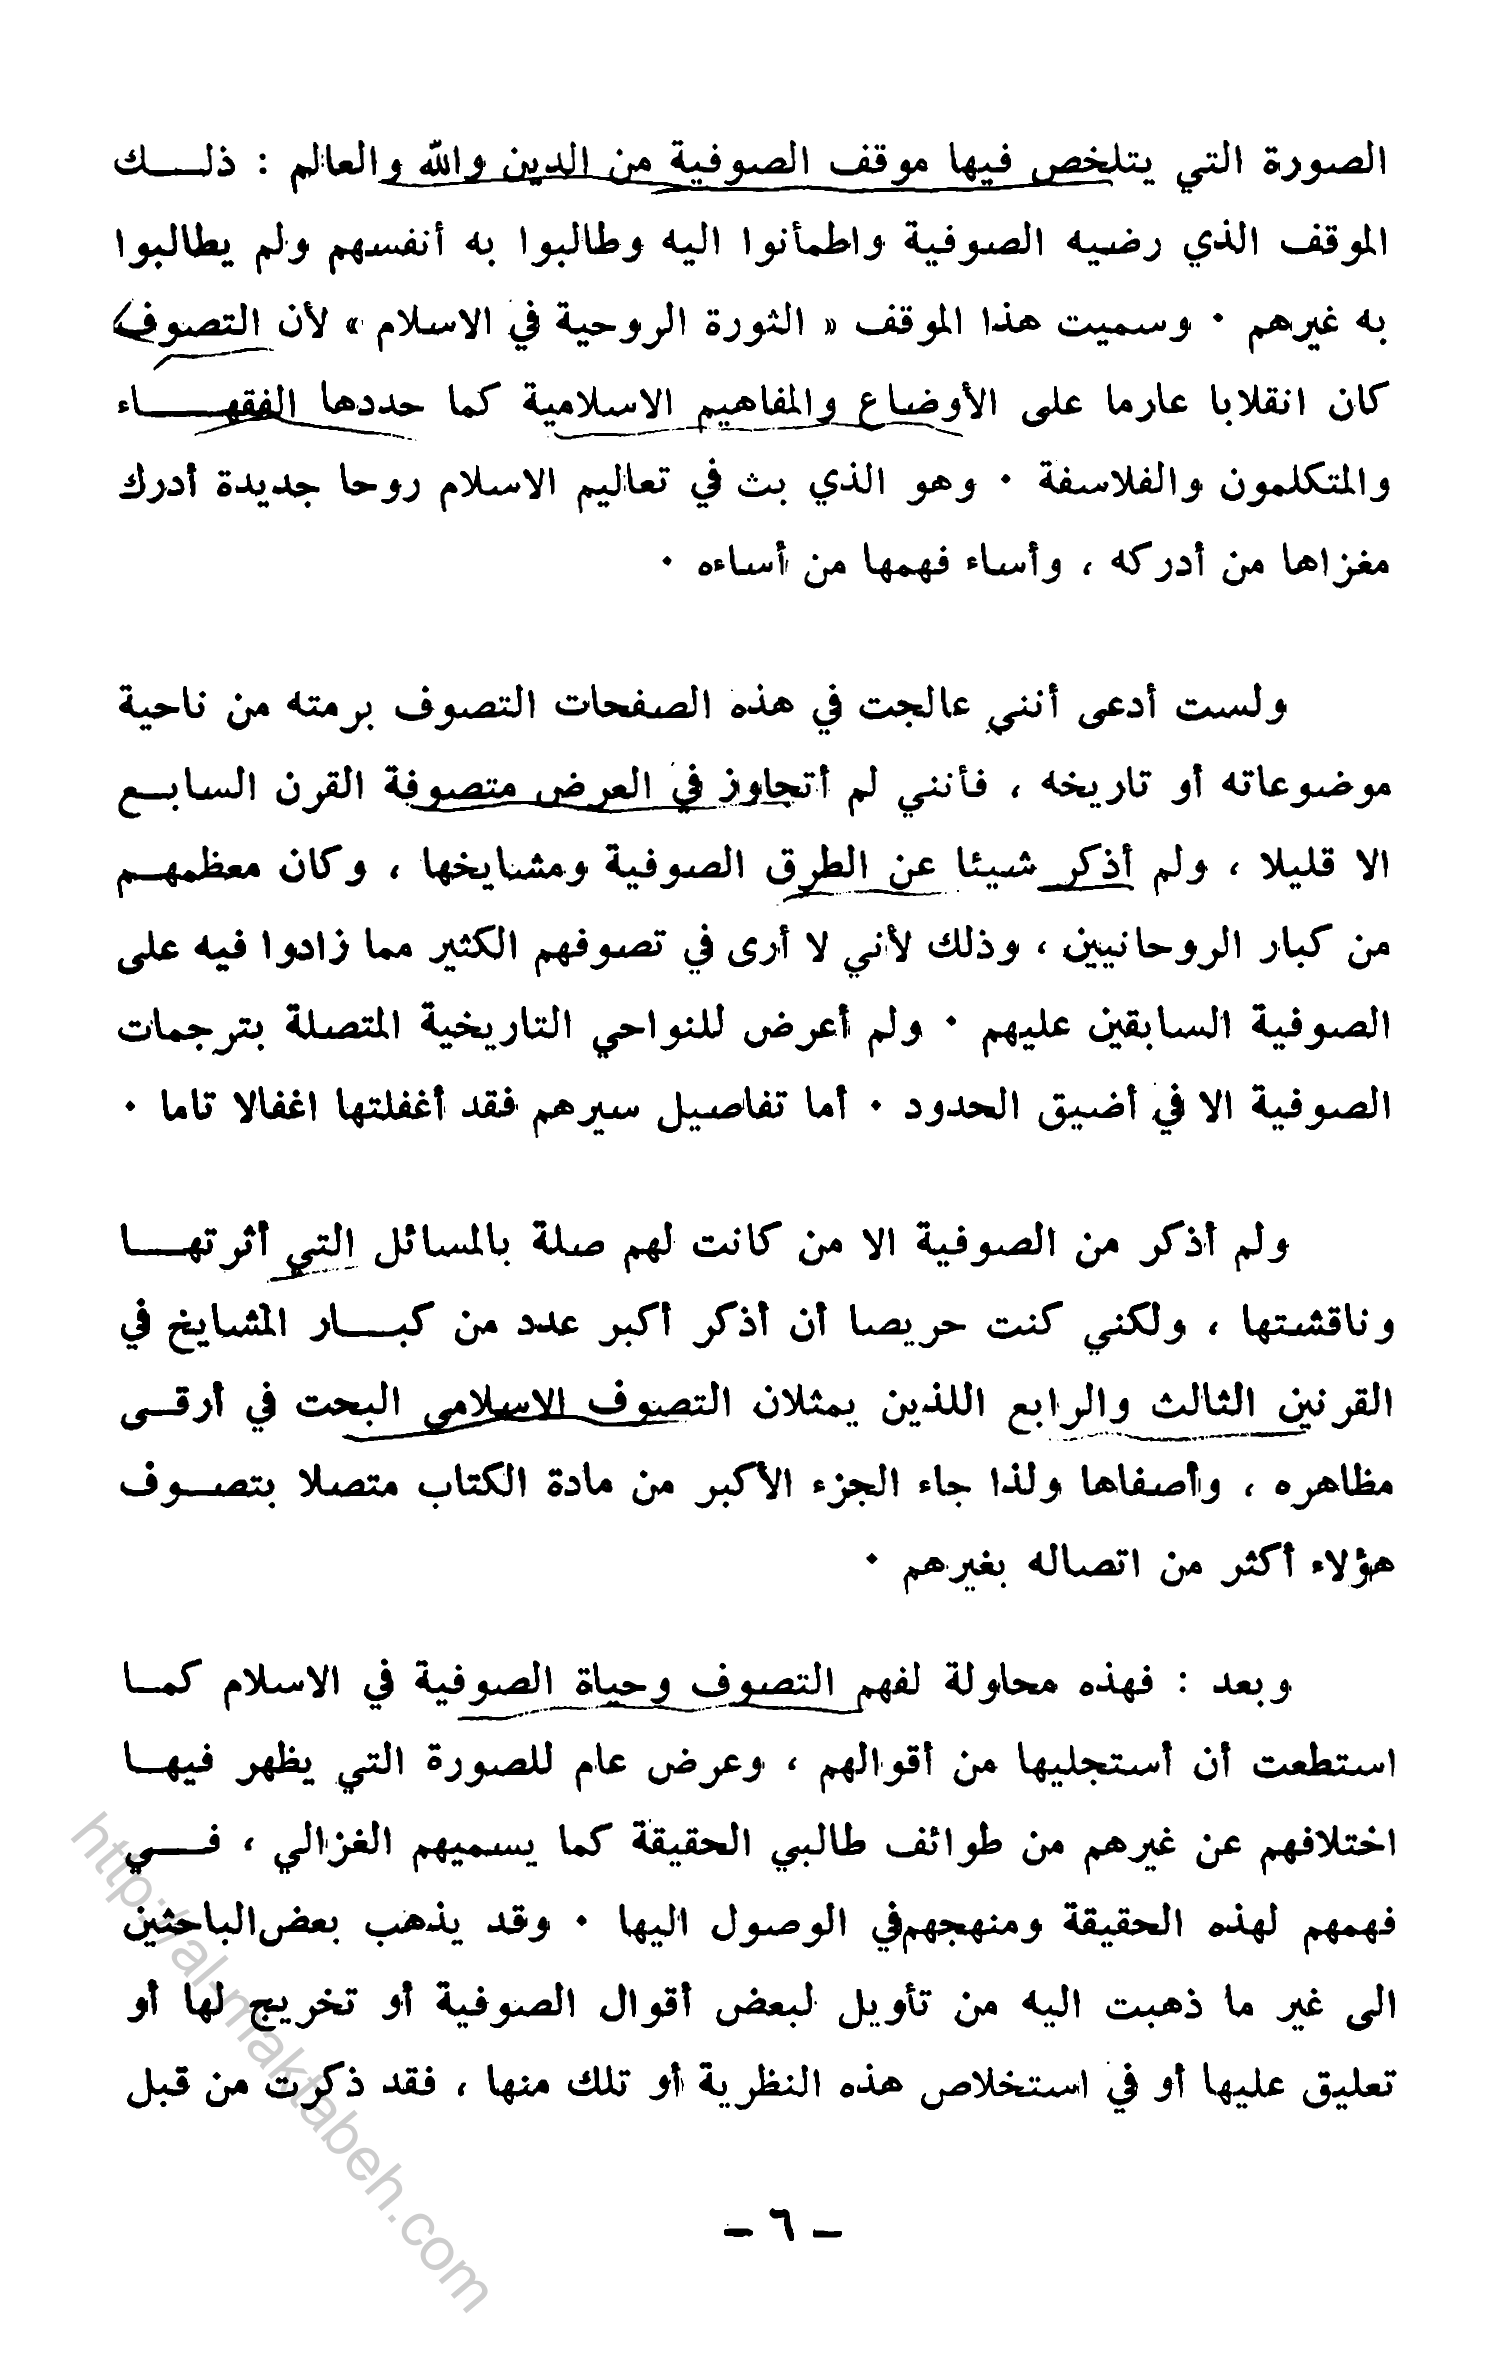 الصورة التي يتلخص فيها موقف الصوفية من الدين والله والعالم : ذلك
الموقف الذي رضيه الصوفية واطمأنوا اليه وطالبوا به أنفسهم ولم يطالبوا
به غيرهم · وسميت هذا الموقف « الثورة الروحية في الاسلام » لأن التصوف
كان انقلابا عارما على الأوضاع والمفاهيم الاسلامية كما حددها الفقهاء
والمتكلمون والفلاسفة · وهو الذي بث في تعاليم الاسلام روحا جديدة أدرك
مغزاها من أدركه ، وأساء فهمها من أساءه ·
ولست أدعى أنني عالجت في هذه الصفحات التصوف برمته من ناحية
موضوعاته أو تاريخه ، فأنني لم أتجاوز في العرض متصوفة القرن السابع
الا قليلا ، ولم أذكر شيئا عن الطرق الصوفية ومشايخها ، وكان معظمهم
من كبار الروحانيين ، وذلك لأني لا أرى في تصوفهم الكثير مما زادوا فيه على
الصوفية السابقين عليهم · ولم أعرض للنواحي التاريخية المتصلة بترجمات
الصوفية الا في أضيق الحدود · أما تفاصيل سيرهم فقد أغفلتها اغفالا تاما ·
ولم أذكر من الصوفية الا من كانت لهم صلة بالمسائل التي أثرتها
وناقشتها ، ولكني كنت حريصا أن أذكر أكبر عدد من كبار المشايخ في
القرنين الثالث والرابع اللذين يمثلان التصوف الاسلامي البحت في أرقى
مظاهره ، وأصفاها ولذا جاء الجزء الأكبر من مادة الكتاب متصلا بتصوف
هؤلاء أكثر من اتصاله بغيرهم ·
وبعد : فهذه محاولة لفهم التصوف وحياة الصوفية في الاسلام كما
استطعت أن أستجليها من أقوالهم ، وعرض عام للصورة التي يظهر فيها
اختلافهم عن غيرهم من طوائف طالبي الحقيقة كما يسميهم الغزالي ، في
فهمهم لهذه الحقيقة ومنهجهم في الوصول اليها · وقد يذهب بعض الباحثين
الى غير ما ذهبت اليه من تأويل لبعض أقوال الصوفية أو تخريج لها أو
تعليق عليها أو في استخلاص هذه النظرية أو تلك منها ، فقد ذكرت من قبل
– ٦ –
http://al-maktabeh.com